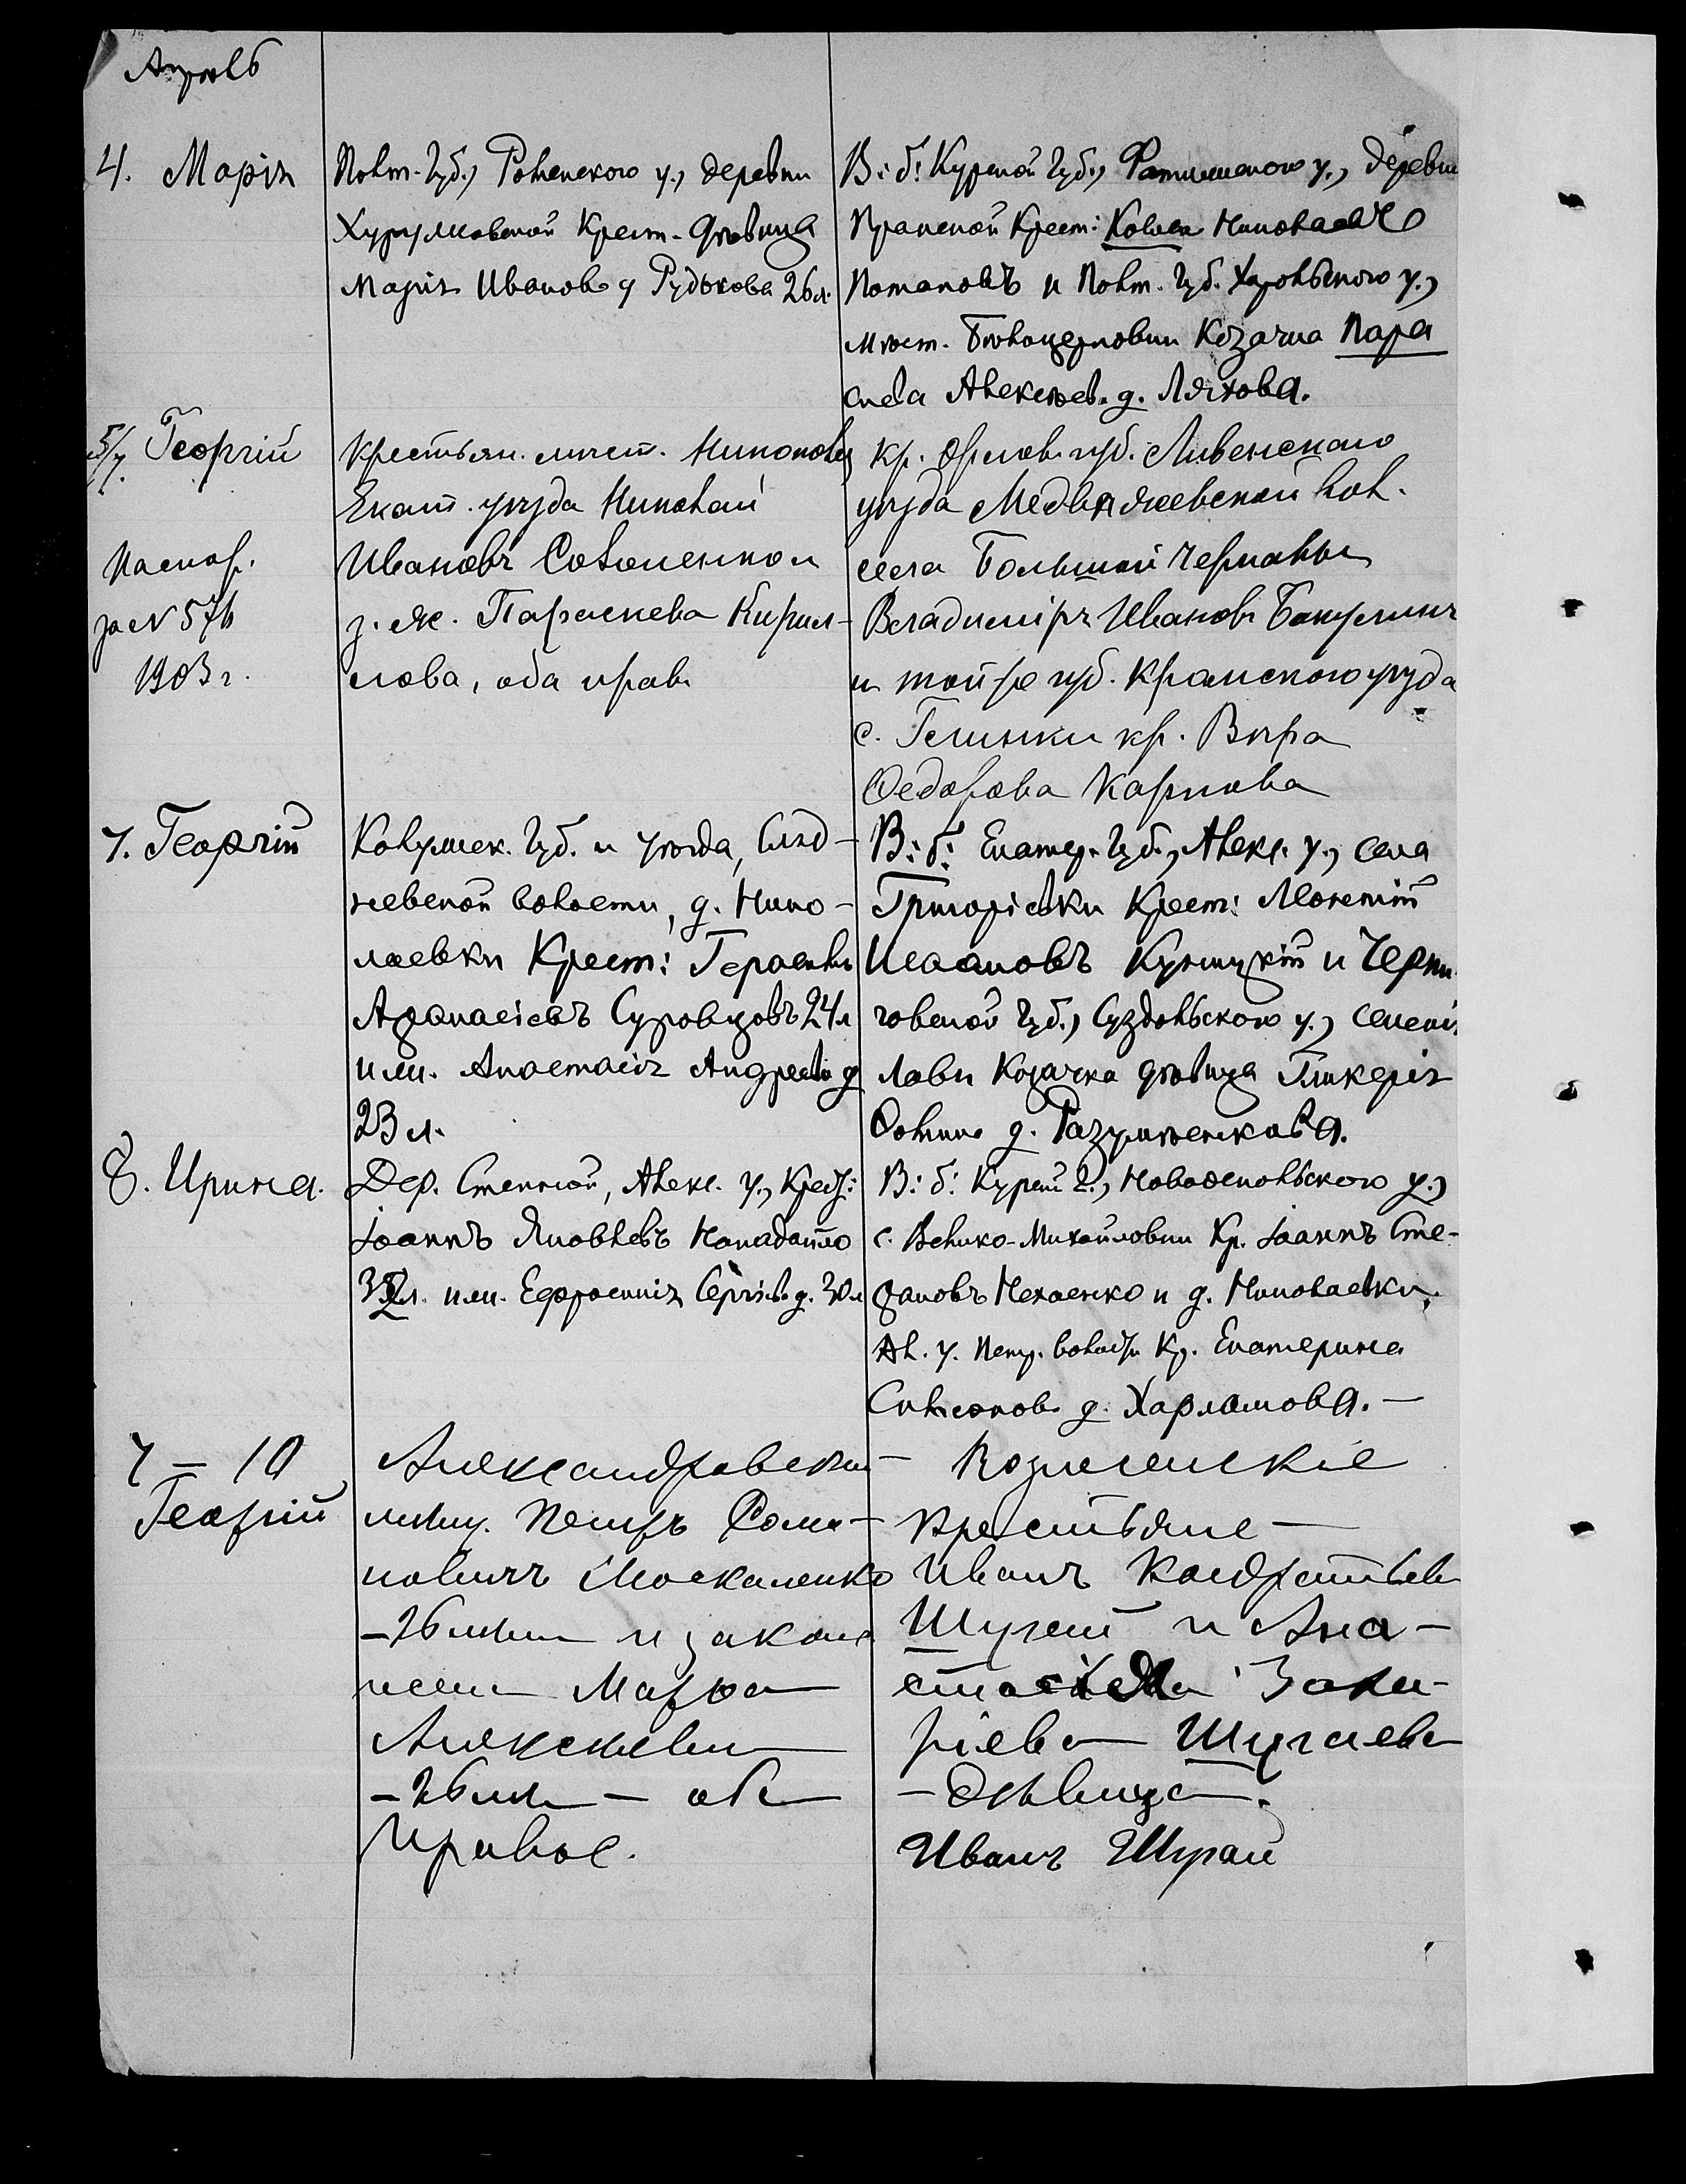 Апрель
4. Марія
Полт. Губ., Роменского у., деревни
Хурумовской Крест. дѣвица
Марія Иванова д Рудькова 26 л.
В: б: Курской Губ., Фатижского у., деревни
Крест: Николаевъ
Потаповъ и Полт. Губ. Хорольского у.,
мѣст. Бѣлоцерковки Козачка Пара
скева Алексѣев. д. Ляхова.
5/7. Георгій
Паспор.
за № 576
1903 г.
Крестьян. мѣст. Никополь
Екат. уѣзда Николай
Ивановъ
з. ж. Параскева Кирил-
лова, оба прав.
кр. Орлов. губ. Ливенского
уѣзда Медвѣжевской вол.
села Большой Чернавы
Владиміръ Ивановъ Бакулинъ
и той же губ. Кромского уѣзда
с. Глинки кр. Вѣра
Федорова Карпова
7. Георгій
Калужск. Губ. и уѣзда,
невской волости, д. Нико-
лаевки Крест: Герасимъ
Афанасіевъ Суровцовъ 24 л
и ж. Анастасія Андреева д
23 л.
В: б: Екатер. Губ., Алекс. у., села
Григорієвки Крест: Леонтій
Исааковъ и Черни
говской Губ., у.,
Козачка дѣвица Гликерія
Фотина д. Разумѣенкова.
8. Ирина.
Дер. Степной, Алекс. у., Крест:
Іоаннъ Яковлевъ
32 л. и ж. Ефросинія Сергіев. д. 30 л
В: б: Курской г., Новооскольского у.,
с. Велико-Михайловки Кр. Іоаннъ Сте-
фановъ Нехаенко и д. Николаевки,
Ал. у. Петр. волости Кр. Екатерина
д. Харламова. —
7 — 10
Георгій
Александровскій
мѣщ. Петръ Рома-
новичъ Москаленко
– 26 лѣтъ и закон.
жена Марѳа
Алексѣева
– 26 лѣтъ – оба
Правос.
Вознесенскіе
крестьяне —
Иванъ Кондратьевъ
Шугай и Ана-
стасія Заха-
ріева Шугаева
– дѣвица.
Иванъ Шугай